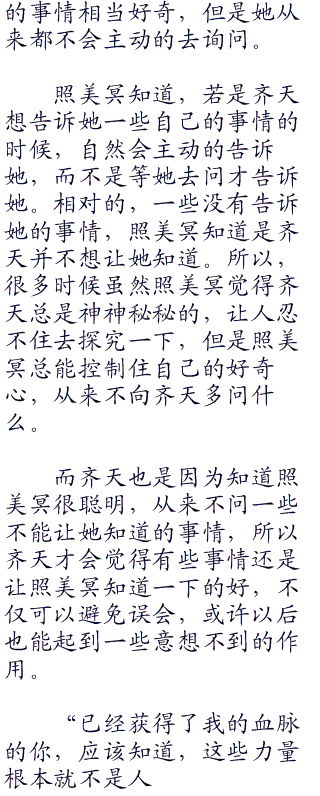 的事情相当好奇，但是她从
来都不会主动的去询问。
照美冥知道，若是齐天
想告诉她一些自己的事情的
时候，自然会主动的告诉
她，而不是等她去问才告诉
她。相对的，一些没有告诉
她的事情，照美冥知道是齐
天并不想让她知道。所以，
很多时候虽然照美冥觉得齐
天总是神神秘秘的，让人忍
不住去探究一下，但是照美
冥总能控制住自己的好奇
心，从来不向齐天多问什
么。
而齐天也是因为知道照
美冥很聪明，从来不问一些
不能让她知道的事情，所以
齐天才会觉得有些事情还是
让照美冥知道一下的好，不
仅可以避免误会，或许以后
也能起到一些意想不到的作
用。
“已经获得了我的血脉
的你，应该知道，这些力量
根本就不是人